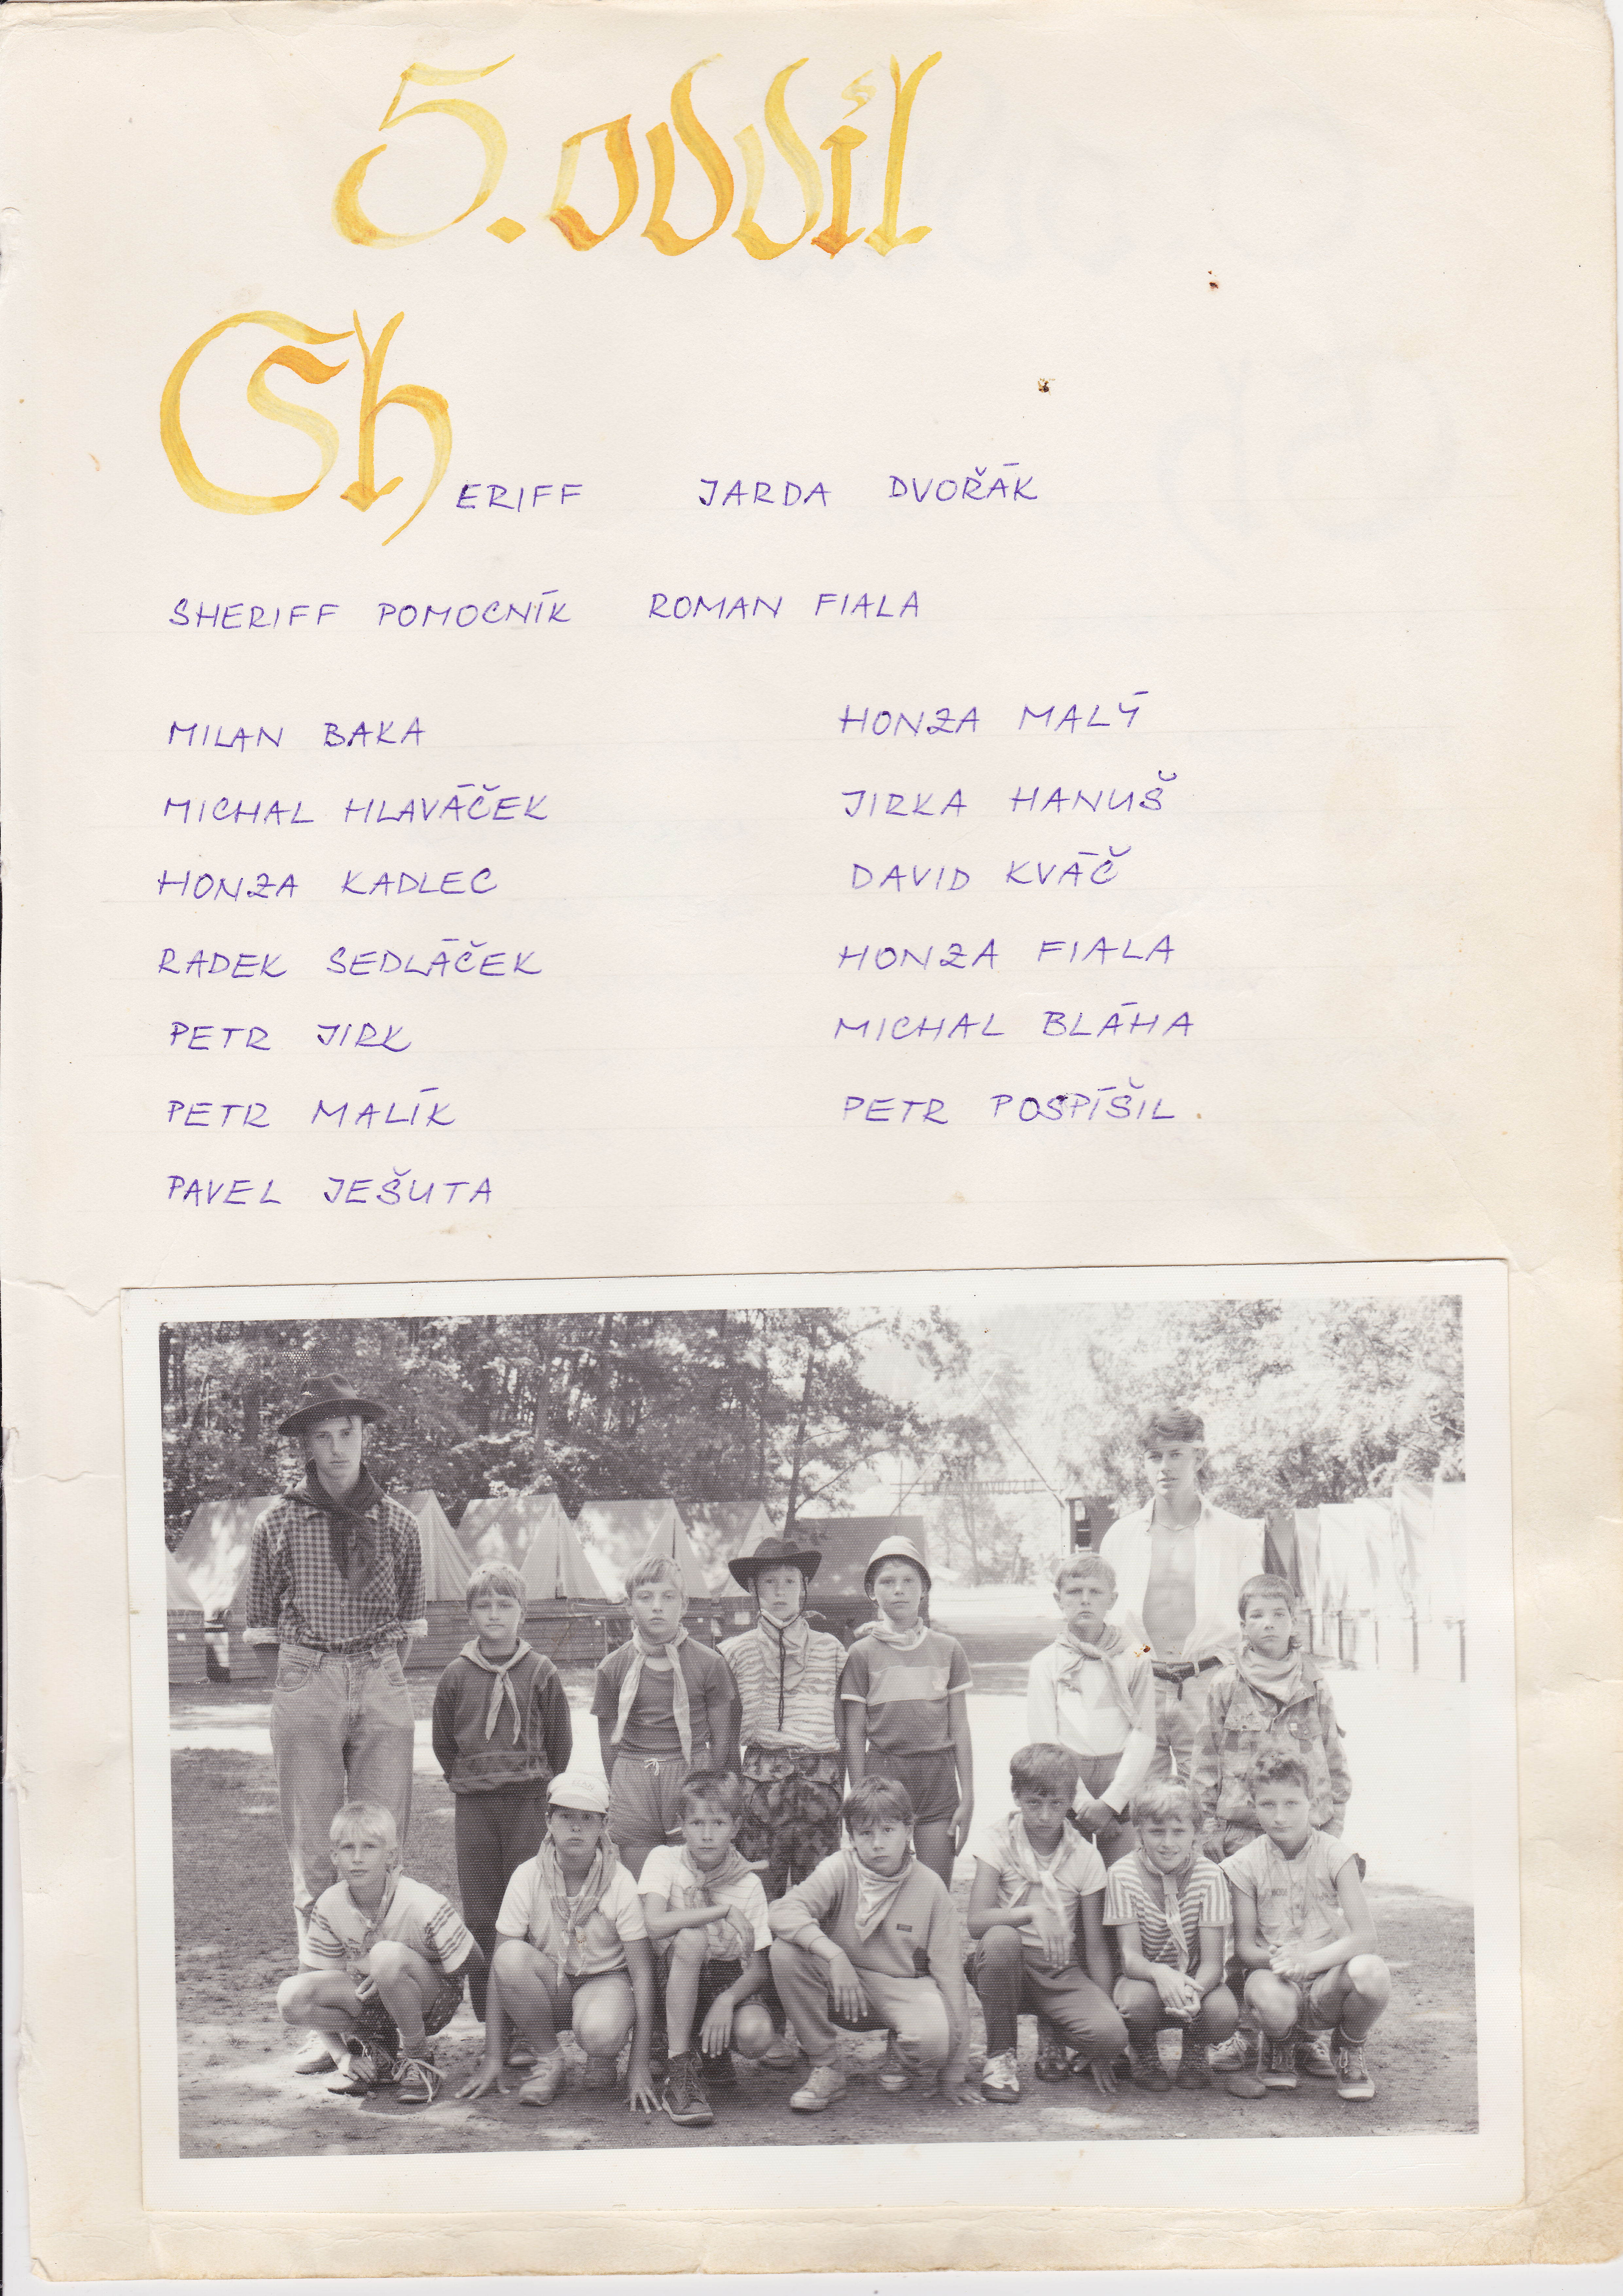 5. oddíl
SHERIFF JARDA DVOŘÁK
SHERIFF POMOCNÍK ROMAN FIALA
MILAN BAKA
MICHAL HLAVÁČEK
HONZA KADLEC
RADEK SEDLÁČEK
PETR JIRK
PETR MALÍK
PAVEL JEŠUTA
HONZA MALÝ
JIRKA HANUŠ
DAVID KVÁČ
HONZA FIALA
MICHAL BLÁHA
PETR POSPÍŠIL.